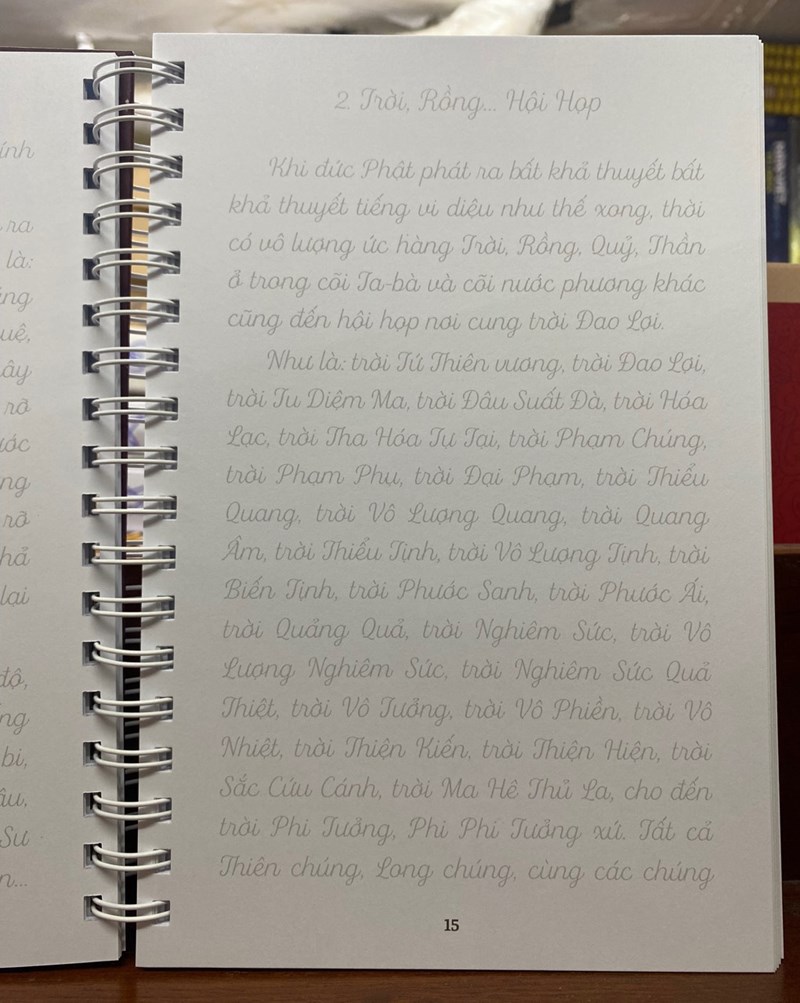 ính
ra
là:
uê,
ây
rỡ
ước
ng
rỡ
hả
lại
độ,
ng
bi,
âu,
Sư
n...
2. Trời, Rồng... Hội Họp
Khi đức Phật phát ra bất khả thuyết bất
khả thuyết tiếng vi diệu như thế xong, thời
có vô lượng ức hàng Trời, Rồng, Quỷ, Thần
ở trong cõi Ta-bà và cõi nước phương khác
cũng đến hội họp nơi cung trời Đao Lợi.
Như là: trời Tứ Thiên vương, trời Đao Lợi,
trời Tu Diệm Ma, trời Đâu Suất Đà, trời Hóa
Lạc, trời Tha Hóa Tự Tại, trời Phạm Chúng,
trời Phạm Phụ, trời Đại Phạm, trời Thiểu
Quang, trời Vô Lượng Quang, trời Quang
Âm, trời Thiểu Tịnh, trời Vô Lượng Tịnh, trời
Biến Tịnh, trời Phước Sanh, trời Phước Ái,
trời Quảng Quả, trời Nghiêm Sức, trời Vô
Lượng Nghiêm Sức, trời Nghiêm Sức Quả
Thiệt, trời Vô Tưởng, trời Vô Phiền, trời Vô
Nhiệt, trời Thiện Kiến, trời Thiện Hiện, trời
Sắc Cứu Cánh, trời Ma Hê Thủ La, cho đến
trời Phi Tưởng, Phi Phi Tưởng xứ. Tất cả
Thiên chúng, Long chúng, cùng các chúng
15